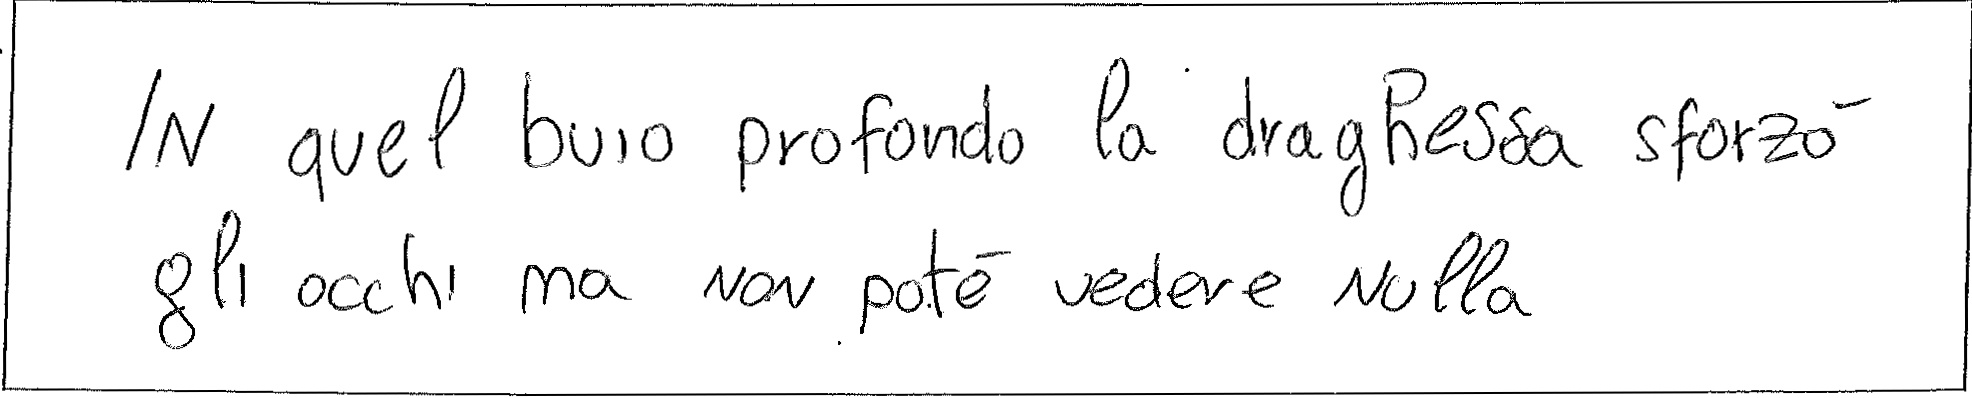 IN quel buio profondo la draghessa sforzò
gli occhi ma non poté vedere nulla